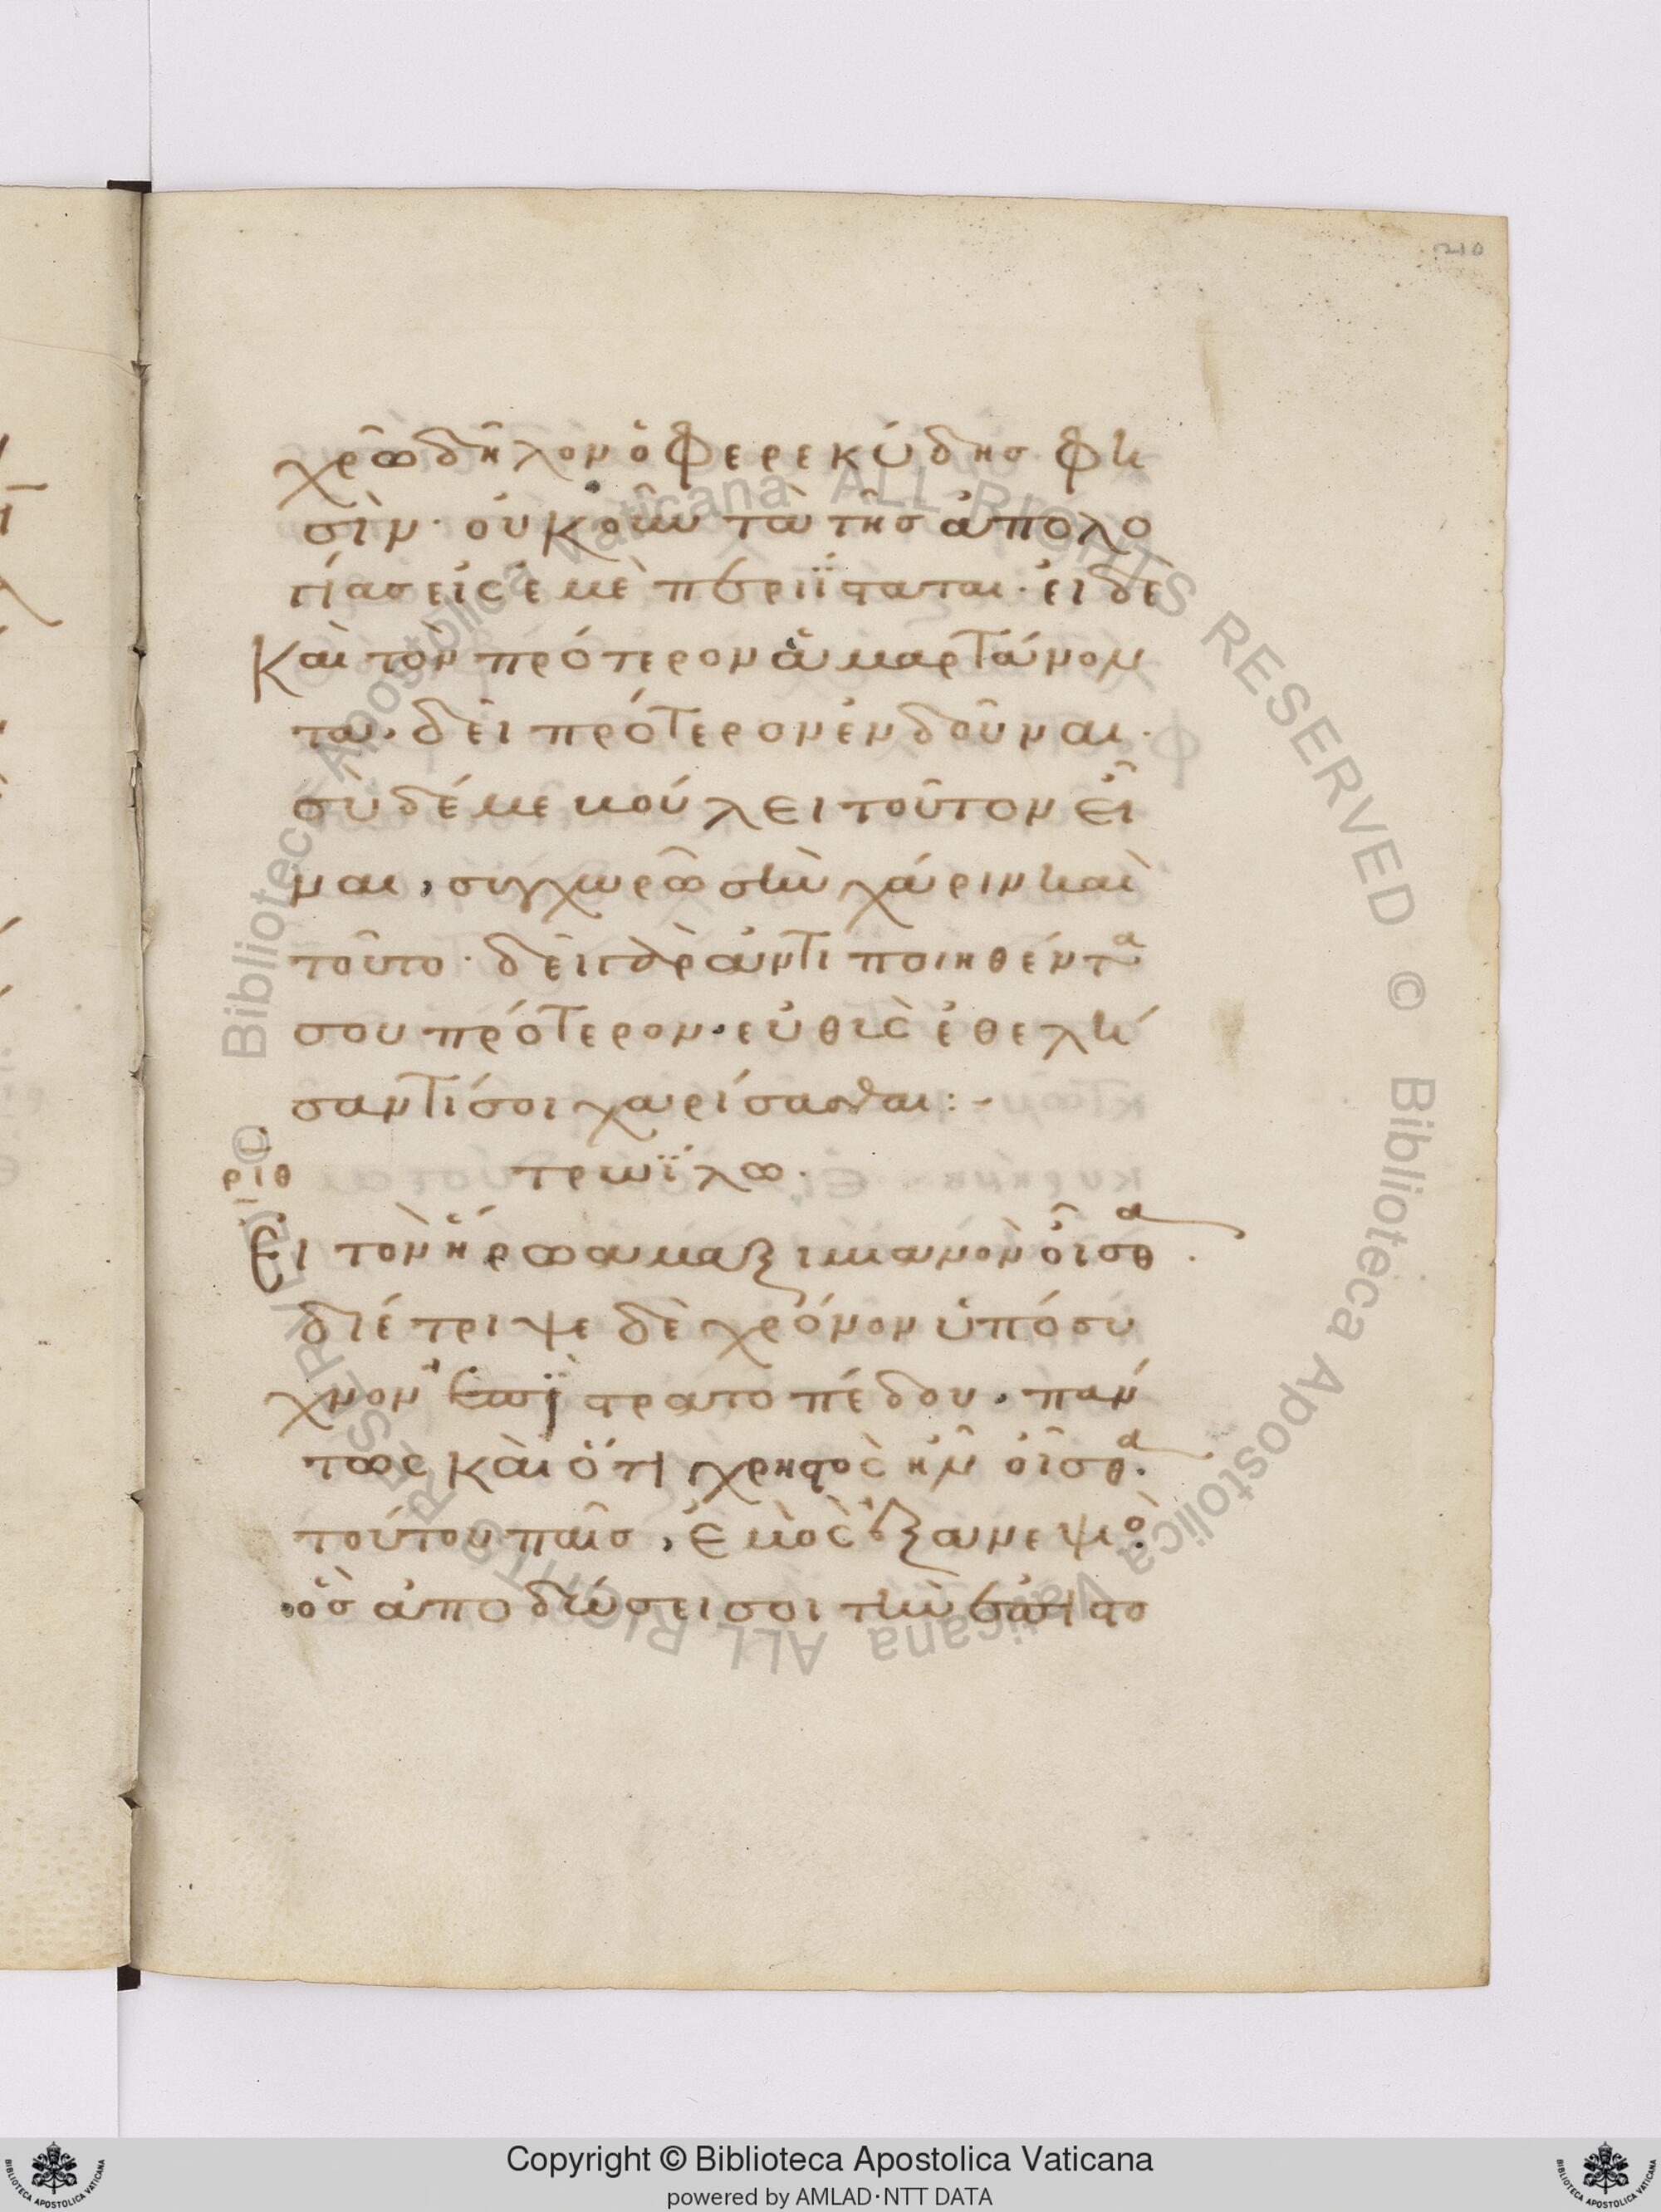 210
χρῶ δῆλον ὁ Φερεκύδης φη
σίν· οὐκοῦν τὰ τῆς ἀπολο
γίας εἰς ἐμὲ περιΐσταται· εἰ δὲ
Καὶ τὸν πρότερον ἁμαρτάνον
τα, δεῖ πρότερον ἐνδοῦναι·
σὺ δέ με βούλει τοῦτον εἶ
ναι, συγχωρῶ σὴν χάριν καὶ
τοῦτο· δεῖ γὰρ ἀντιποιηθέντα
σου πρότερον, εὐθὺς ἐθελή
σαντί σοι χαρίσασθαι:-
ριθ τρωΐλω·
Εἰ τὸν ἥρωα μαξιμιανὸν οἶσθα·
διέτριψε δὲ χρόνον ὑπὸ συ
χνὸν ἐπὶ στρατοπέδου, πάν
τως Καὶ ὅτι χρηστὸς ἦν οἶσθα·
τούτου παῖς, ἐμὸς δ' ἀνεψιὸς
ὃς ἀποδώσει σοι τὴν ἐπιστο
Copyright © Biblioteca Apostolica Vaticana
powered by AMLAD·NTT DATA
© Biblioteca Apostolica Vaticana ALL RIGHTS RESERVED © Biblioteca Apostolica Vaticana ALL RIGHTS RESERVED